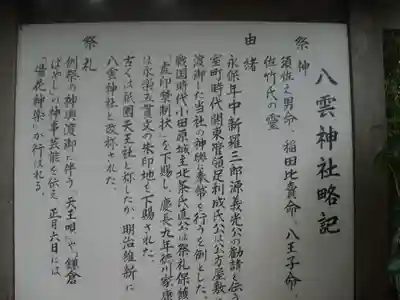 八雲神社略記
祭神
須佐之男命、稲田比賣命、八王子命、
佐竹氏の霊
由緒
永保年中新羅三郎源義光公の勧請と伝う
室町時代関東管領足利成氏公は公方屋敷
渡御した当社の神輿に奉幣を行うを例とした。
戦国時代小田原城主北条氏直公は祭礼保護
「虎印禁制状」を下賜し、慶長九年徳川家康
は永楽五貫文の朱印地を下賜された。
古くは祇園天王社と称したが、明治維新に
八雲神社と改称された。
祭礼
例祭の神輿渡御に伴う「天王唄」や鎌倉
ばやしの神事芸能を伝え 正月六日には
「湯花神楽」が行はれる。